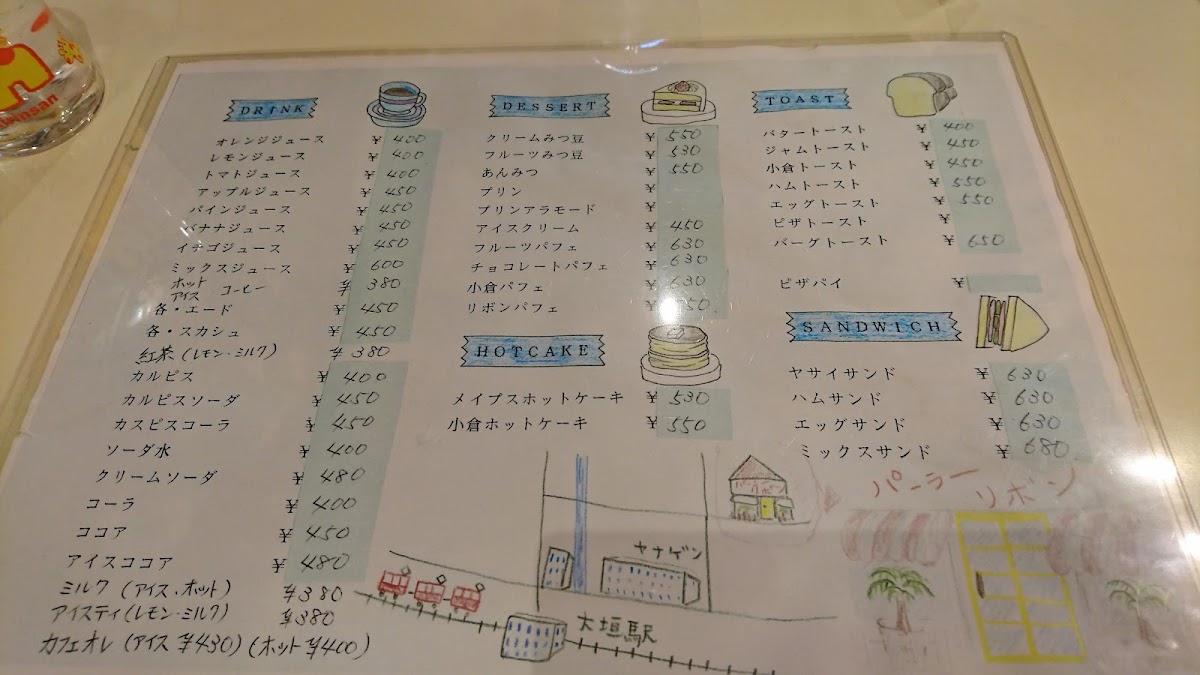 DRINK
オレンジジュース ¥ 400
レモンジュース ¥ 400
トマトジュース ¥ 400
アップルジュース ¥ 450
パインジュース ¥ 450
バナナジュース ¥ 450
イチゴジュース ¥ 450
ミックスジュース ¥ 600
ホット アイス コーヒー ¥ 380
各・エード ¥ 450
各・スカシュ ¥ 450
紅茶(レモン・ミルク) ¥380
カルピス ¥ 400
カルピスソーダ ¥ 450
カスピスコーラ ¥ 450
ソーダ水 ¥ 400
クリームソーダ ¥ 480
コーラ ¥ 400
ココア ¥ 450
アイスココア ¥ 480
ミルク (アイス・ホット) ¥380
アイスティ(レモン・ミルク) ¥380
カフェオレ (アイス ¥430) (ホット ¥400)
DESSERT
クリームみつ豆 ¥ 550
フルーツみつ豆 ¥ 530
あんみつ ¥ 550
プリン ¥
プリンアラモード ¥
アイスクリーム ¥ 450
フルーツパフェ ¥ 630
チョコレートパフェ ¥ 630
小倉パフェ ¥ 630
リボンパフェ ¥
HOTCAKE
メイプスホットケーキ ¥ 530
小倉ホットケーキ ¥ 550
TOAST
バタートースト ¥ 400
ジャムトースト ¥ 450
小倉トースト ¥ 450
ハムトースト ¥ 550
エッグトースト ¥ 550
ピザトースト ¥
バーグトースト ¥ 650
ピザパイ ¥
SANDWICH
ヤサイサンド ¥ 630
ハムサンド ¥ 630
エッグサンド ¥ 630
ミックスサンド ¥ 680
パーラー
リボン
ヤナゲン
大垣駅